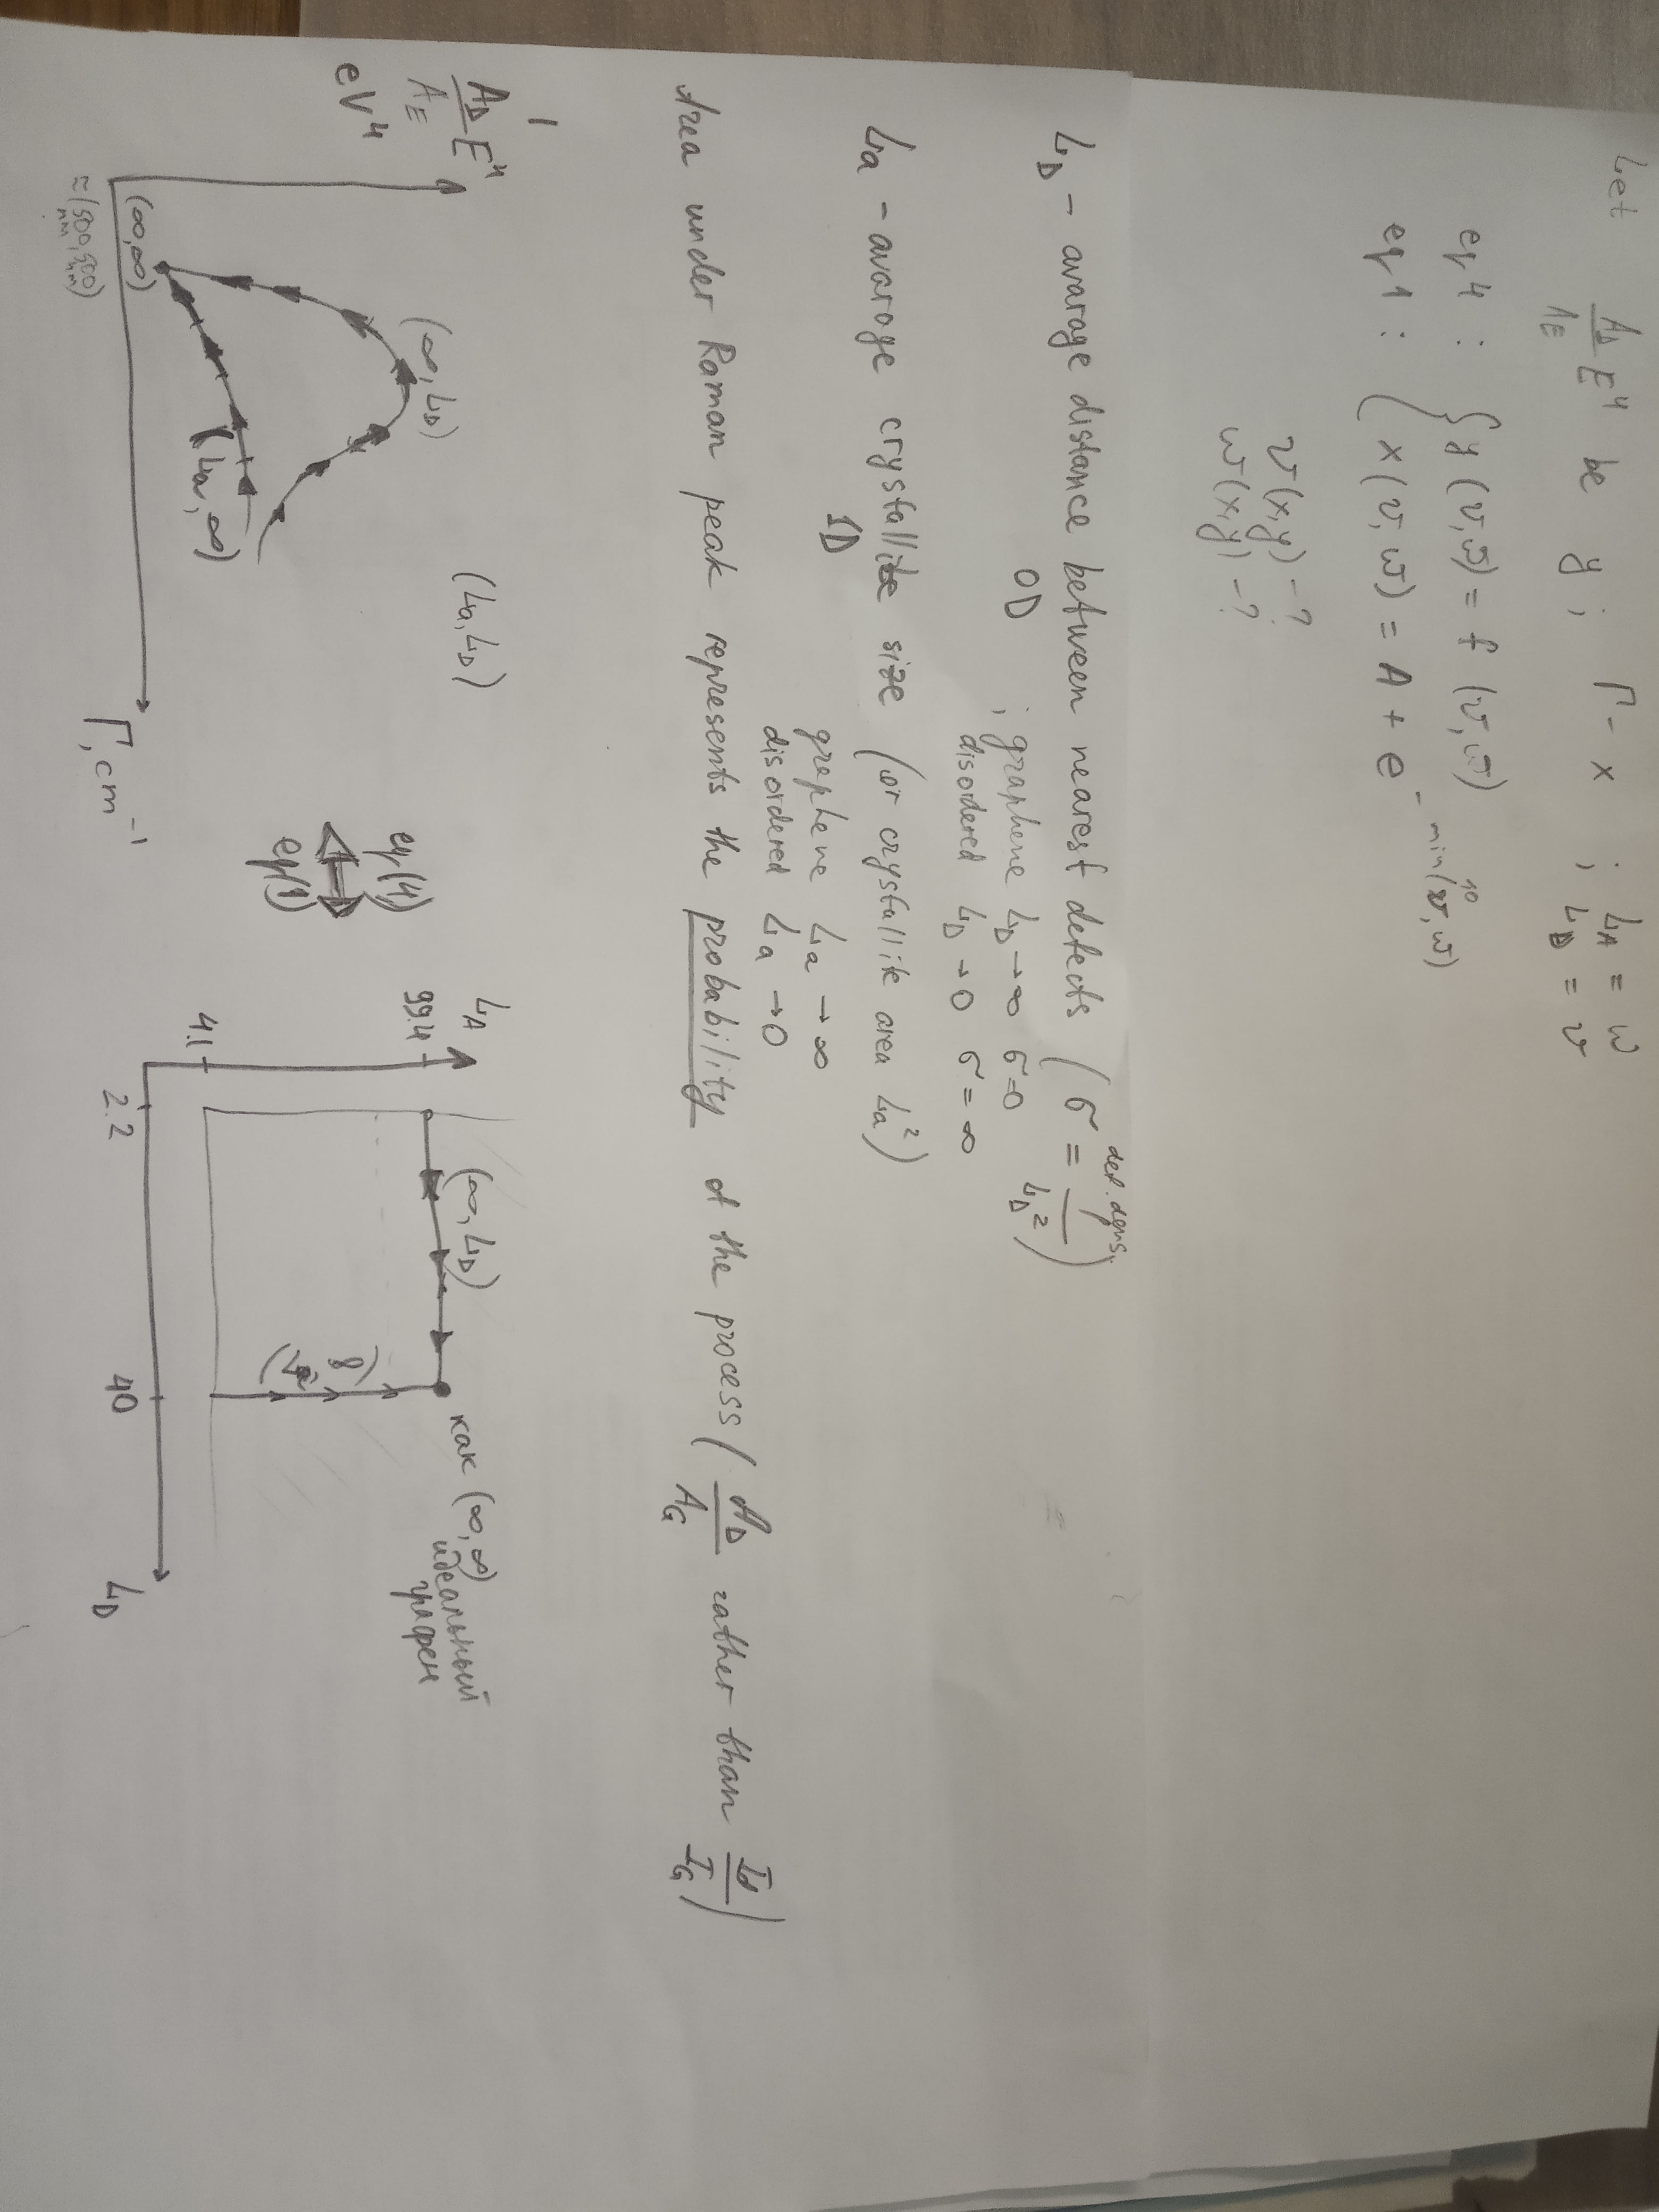 Let A_D/A_E E⁴ be y ; Γ - x ; L_A = w
L_D = v
eq 4 : { y (v, w) = f (v, w)
eq 1 : { x (v, w) = A + e^(- min(v, w))
10
v (x,y) - ?
w (x,y) - ?
L_D - avarage distance between nearest defects ( σ = 1/L_D² )
def. dens.
0D ; graphene L_D → ∞ σ=0
disordered L_D → 0 σ = ∞
L_a - avarage crystallite size (or crystallite area L_a²)
1D
graphene L_a → ∞
disordered L_a → 0
Area under Raman peak represents the probability of the process ( A_D/A_G rather than I_d/I_G )
A_D/A_E E⁴
eV⁴
(∞, L_D)
(L_a, L_D)
(L_a, ∞)
(∞,∞)
≈(500,500)
nm nm
Γ, cm⁻¹
eq (4)
eq(1)
L_A
99.4
4.1
(∞, L_D)
как (∞, ∞)
идеальный
графен
(L_a, ∞)
2.2
40
L_D